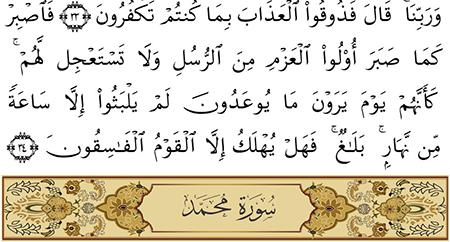 وَرَبِّنَاۚ قَالَ فَذُوقُوا۟ ٱلۡعَذَابَ بِمَا كُنتُمۡ تَكۡفُرُونَ ۝٣٣ فَٱصۡبِرۡ
كَمَا صَبَرَ أُو۟لُوا۟ ٱلۡعَزۡمِ مِنَ ٱلرُّسُلِ وَلَا تَسۡتَعۡجِل لَّهُمۡۚ
كَأَنَّهُمۡ يَوۡمَ يَرَوۡنَ مَا يُوعَدُونَ لَمۡ يَلۡبَثُوٓا۟ إِلَّا سَاعَةٗ
مِّن نَّهَارِۭۚ بَلَٰغٞۚ فَهَلۡ يُهۡلَكُ إِلَّا ٱلۡقَوۡمُ ٱلۡفَٰسِقُونَ ۝٣٤
سورة محمد